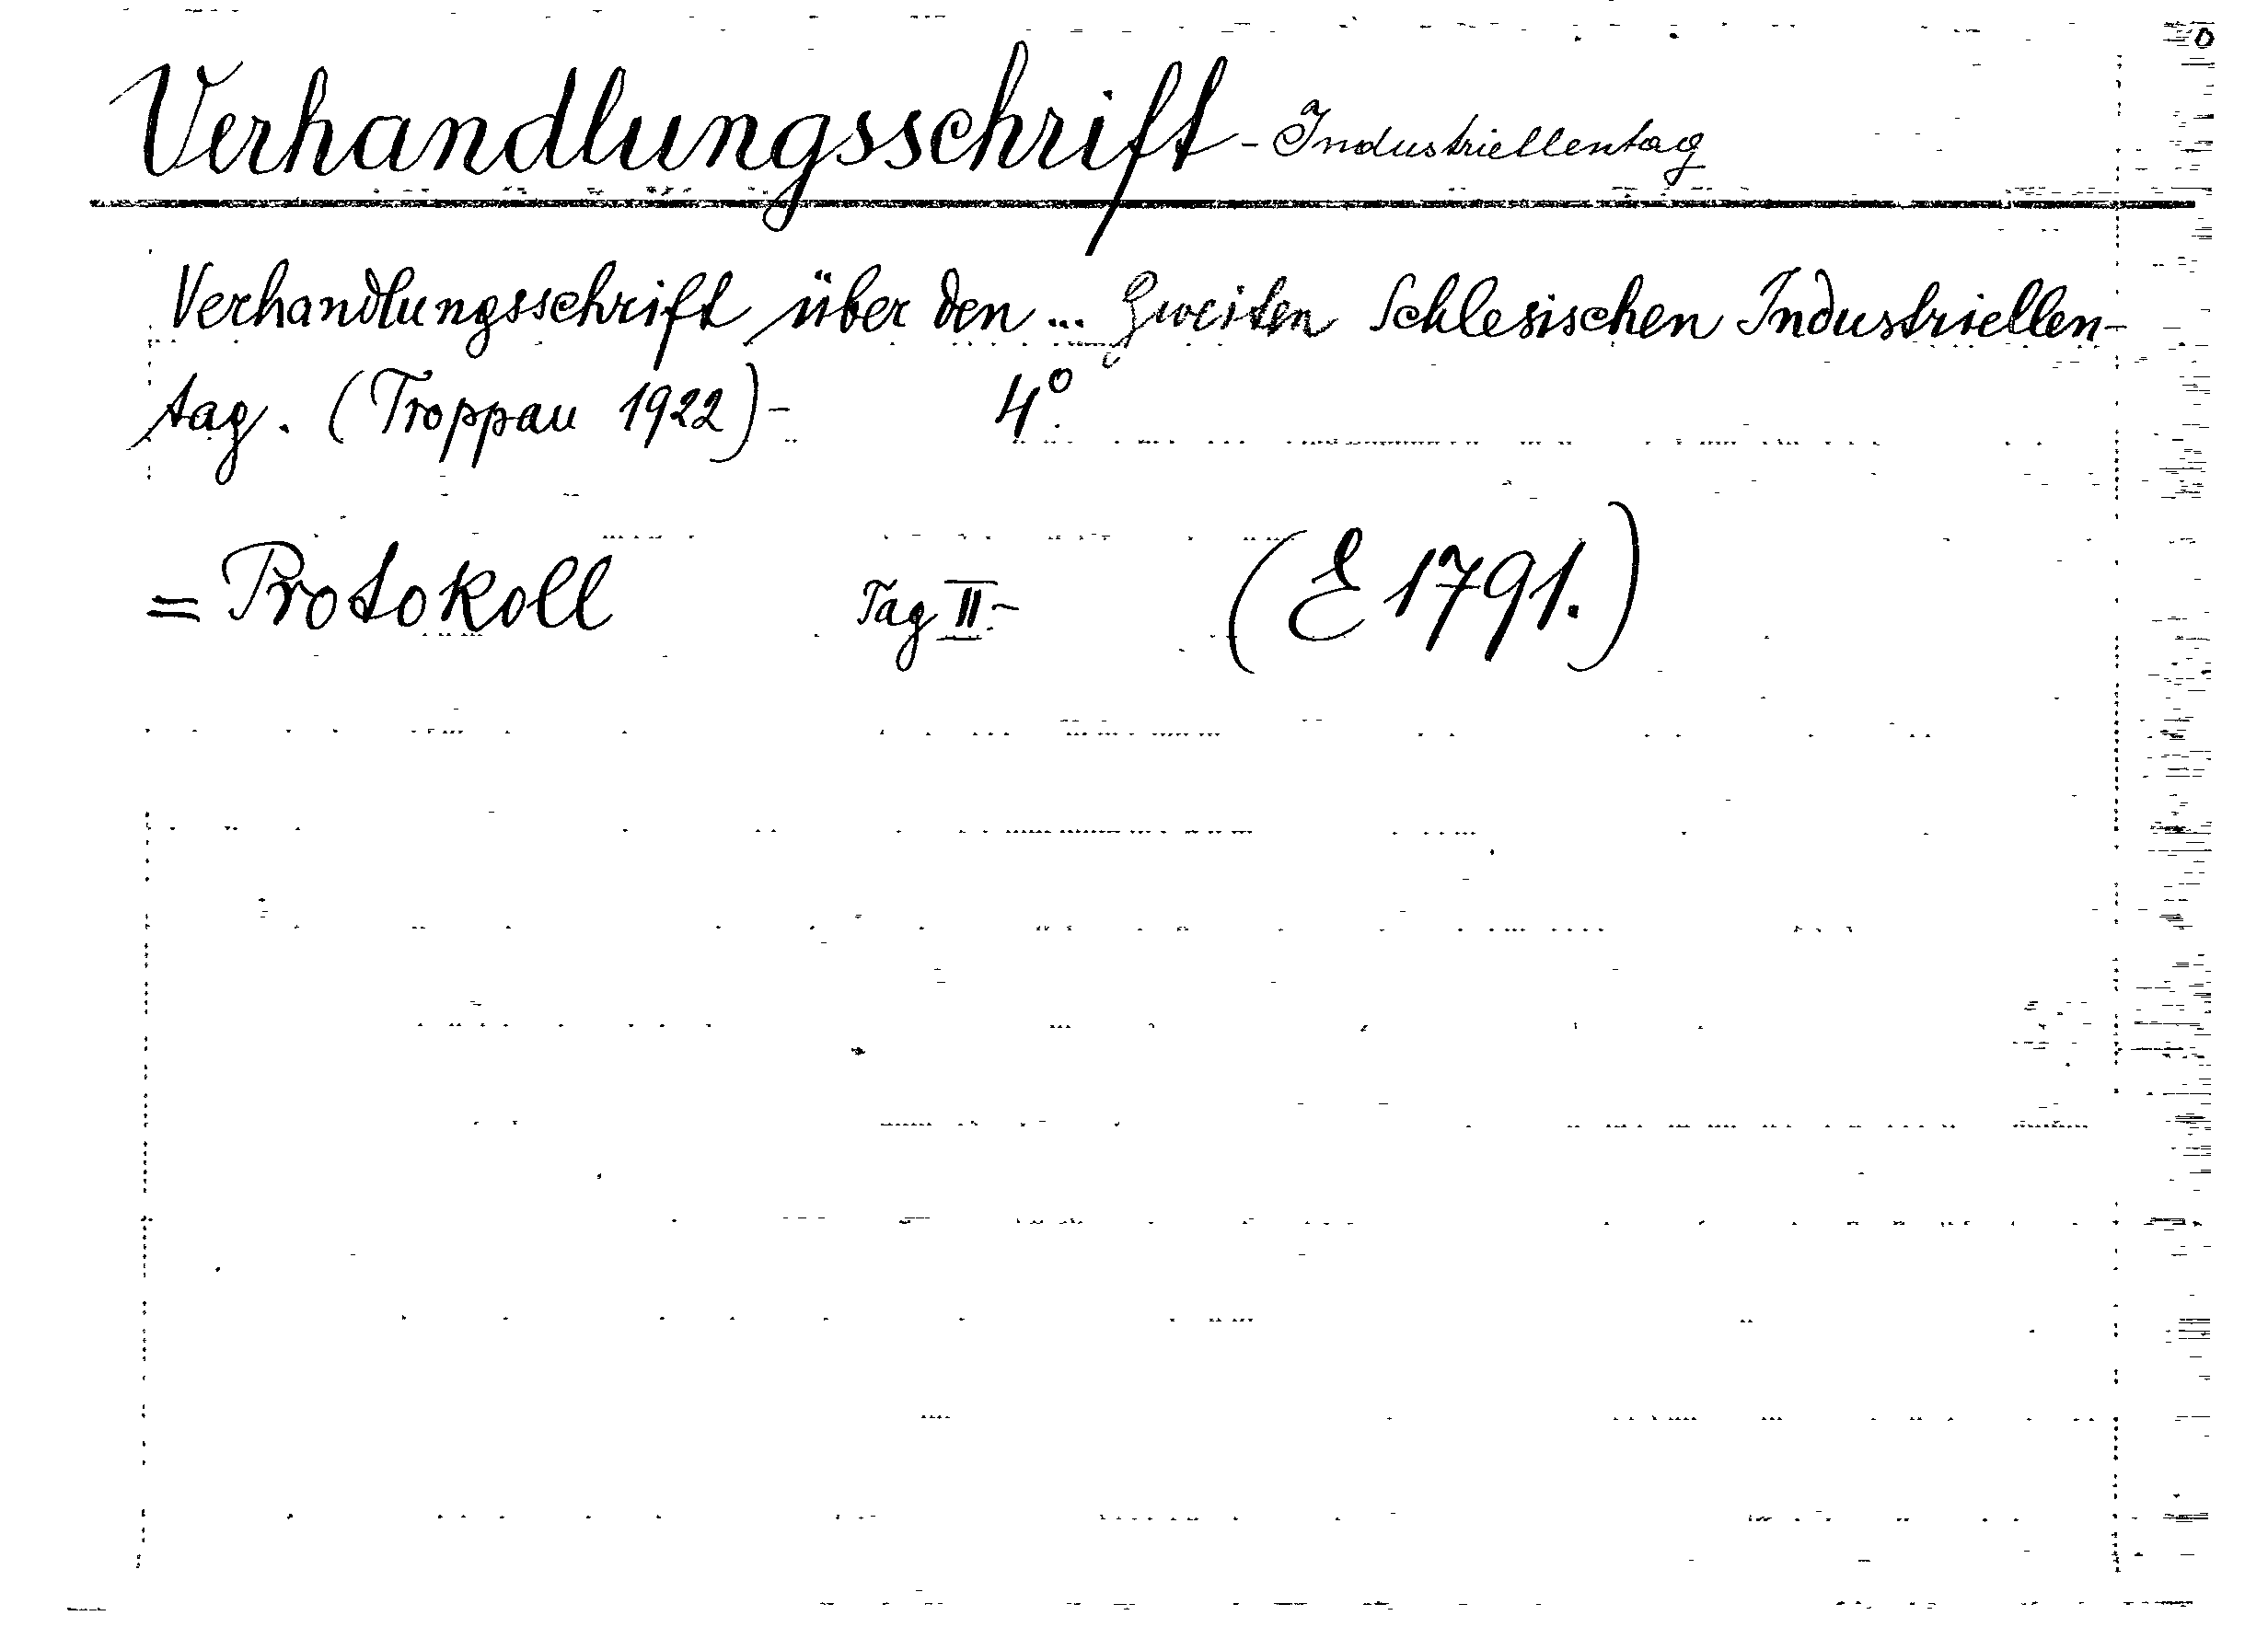 Verhandlungsschrift - Industriellentag
Verhandlungsschrift über den ... Zweiten Schlesischen Industriellen-
tag. (Troppau 1922) - 4°.
= Protokoll Tag II.- (E 1791.)